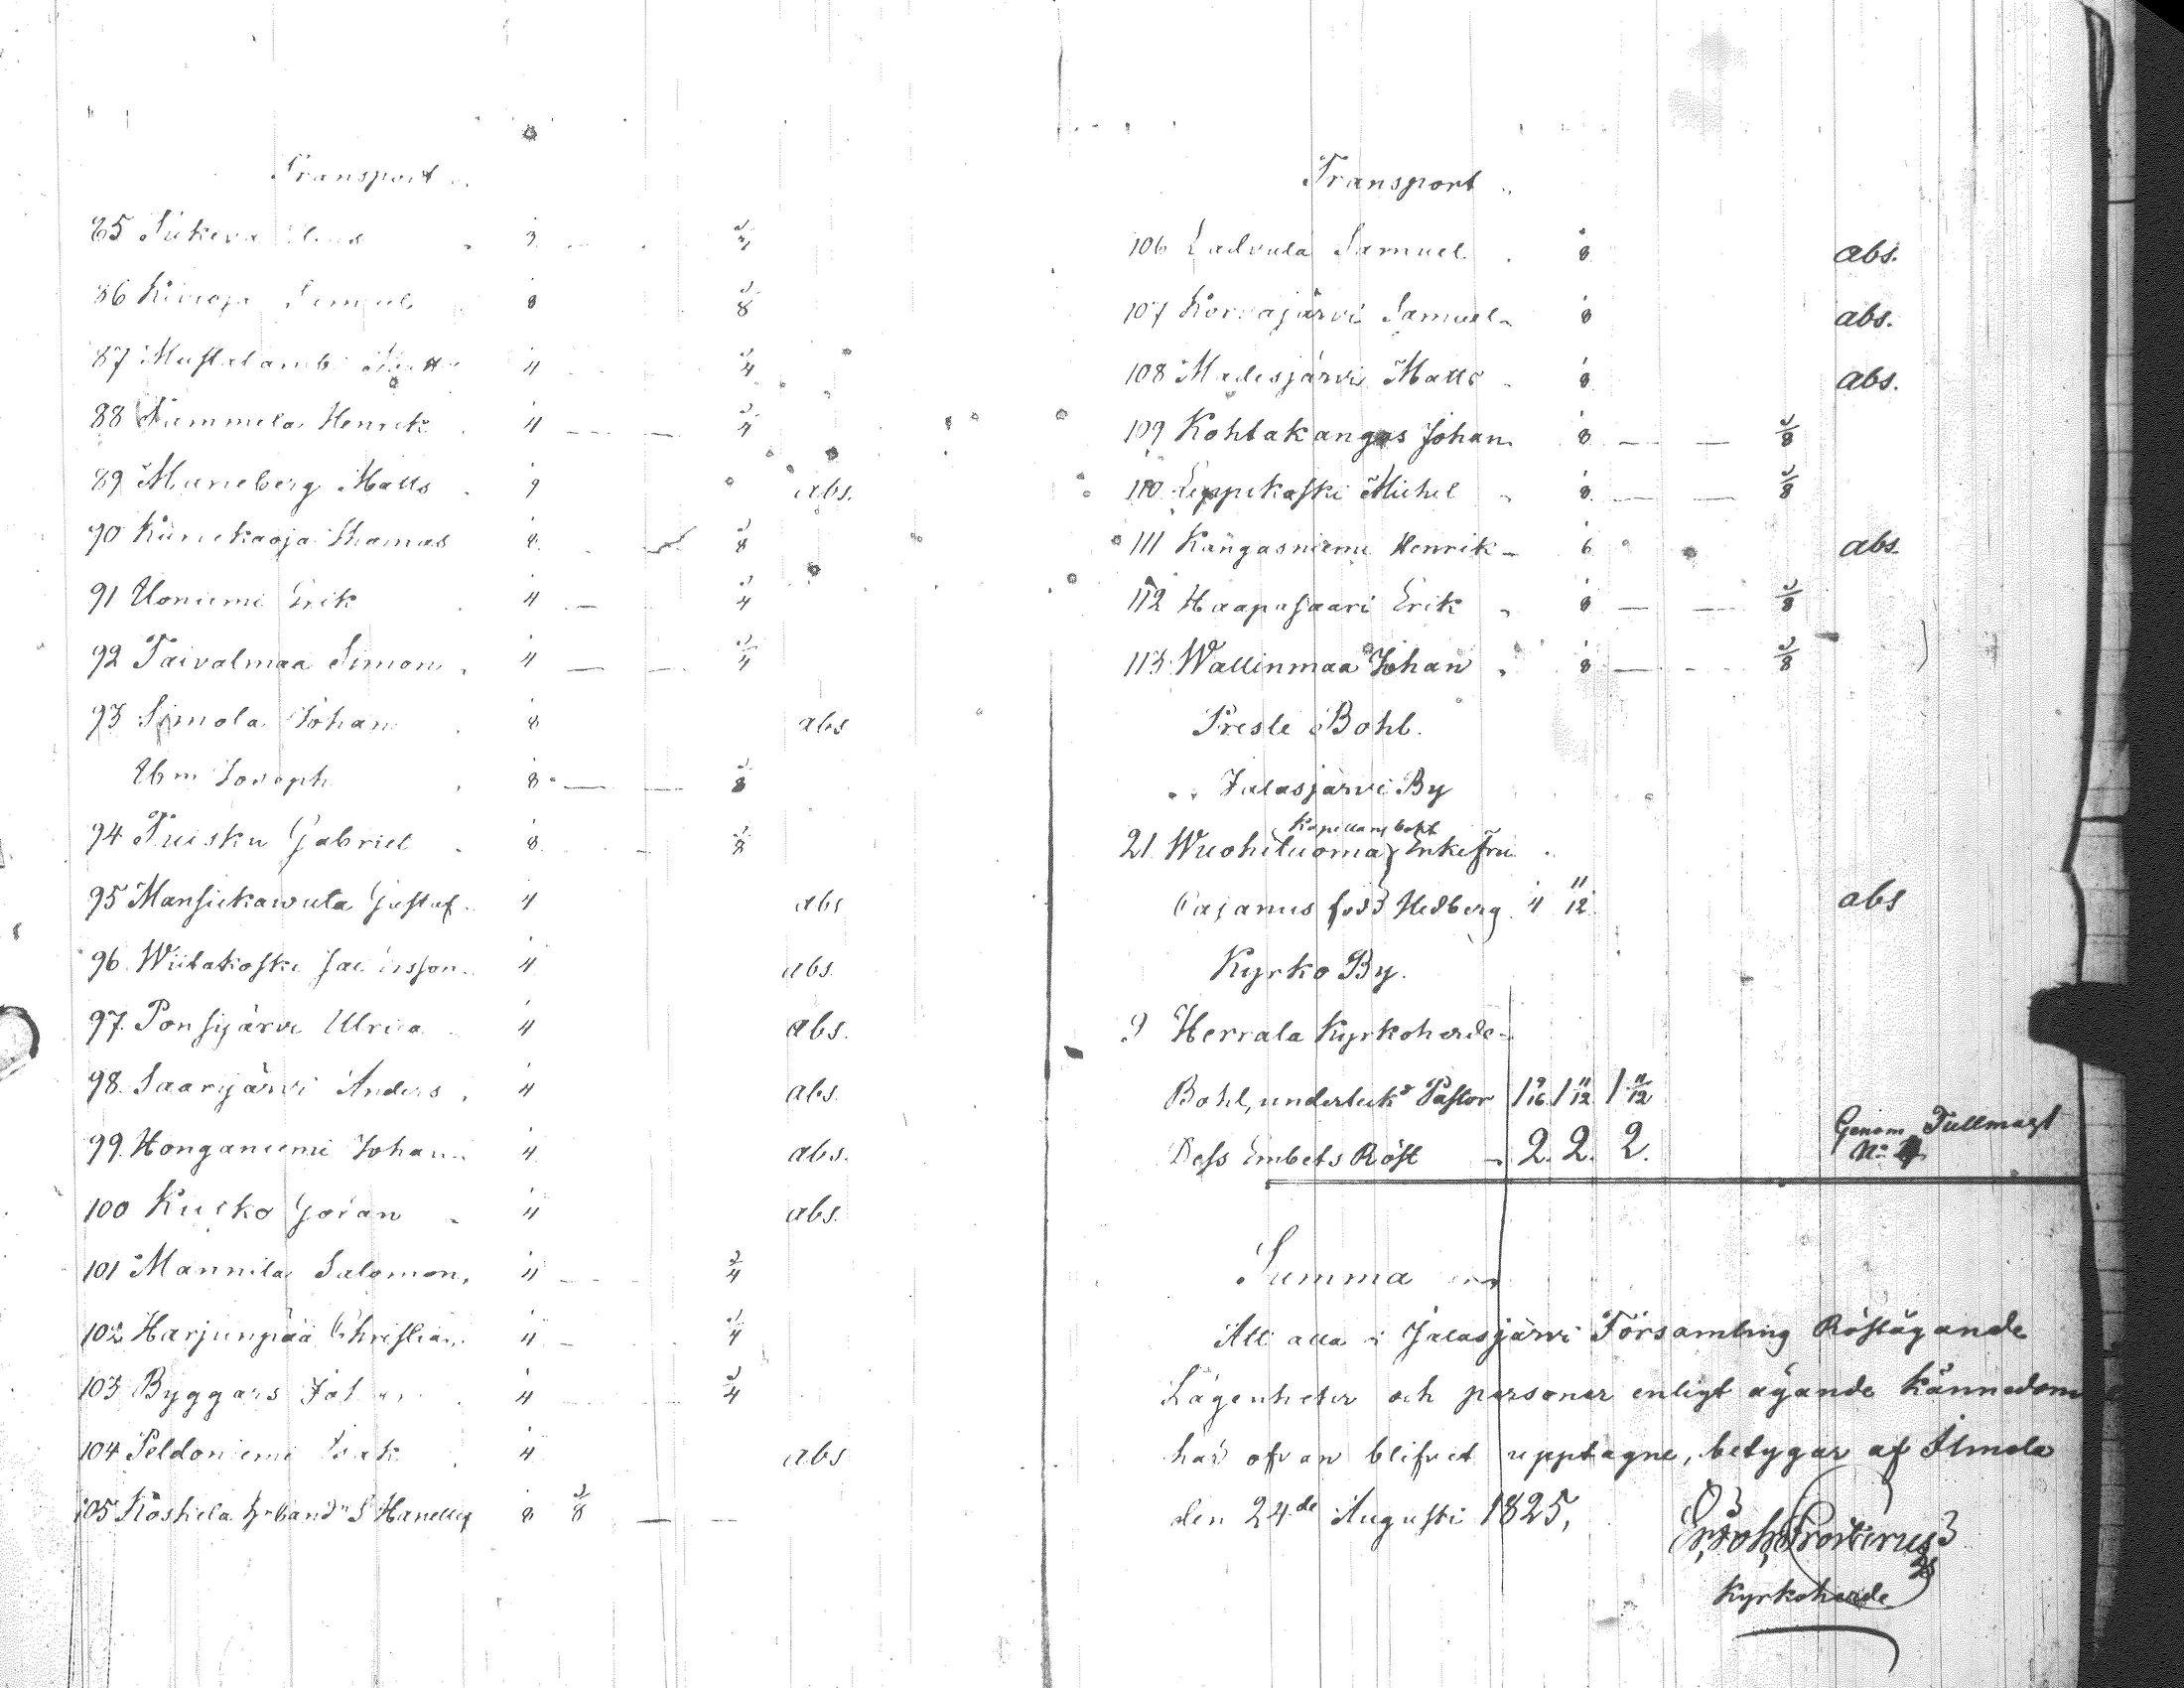 Transport
85 1/3 1/3
86 Samuel 1/8 1/8
87 Mustalamb Matts 1/4 1/4
88 Nummela Henrik 1/4 — — 1/4
89 Muneberg Matts abs.
90 Thomas 1/8 1/8
91 Uoniemi Erik 1/4 — 1/4
92 Taivalmaa Simon 1/4 — — 1/4
93 Simola Johan 1/8 abs
Joseph 1/8 — — 1/8
94 Tuisku Gabriel 1/8 1/8
95 Mansickawuta Gustaf 1/4 abs
96 Wiitakoski 1/4 abs.
97. Ponsijärvi Ulrica 1/4 abs.
98. Saarijärvi Anders 1/4 abs.
99. Honganiemi Johan 1/4 abs.
100 Kusko Göran 1/4 abs.
101 Mannila Salomon, 1/4 1/4
102 Harjunpää Christian 1/4 1/4
103 Byggars 1/4 1/4
104 Peldoniemi Isak 1/4 abs
105 Koskela 1/8 1/8 — —
Transport
106 Ladvala Samuel 1/8 abs.
107 Korvajärvi Samuel 1/8 abs.
108 Madesjärvi Matts 1/8 abs.
109 Kohtakangas Johan 1/8 — — 1/8
110 Leppikoski Michel 1/8 — — 1/8
111 Kangasniemi Henrik 1/6 abs.
112 Haapasaari Erik 1/8 — — 1/8
113 Wallinmaa Johan 1/8 — — 1/8
Preste Bohl.
Jalasjärvi By
Kapellans bohl
21 Wuohiluoma Enkefru
Cajanus född Hedberg 1/4 11/12 abs
Kyrko By.
9 Herrala Kyrkoherde
Bohl, Pastor 1 9/16 1 11/12 1 11/12
Dess Embets Röst 2. 2. 2. Genom Fullmagt
No
Summa
Att alla i Jalasjärvi Församling Röstägande
Lägenheter och personer enligt ägande kännedom
här ofvan blifvit upptagne, betygar af Ilmola
den 24de Augusti 1825,
Kyrkoherde